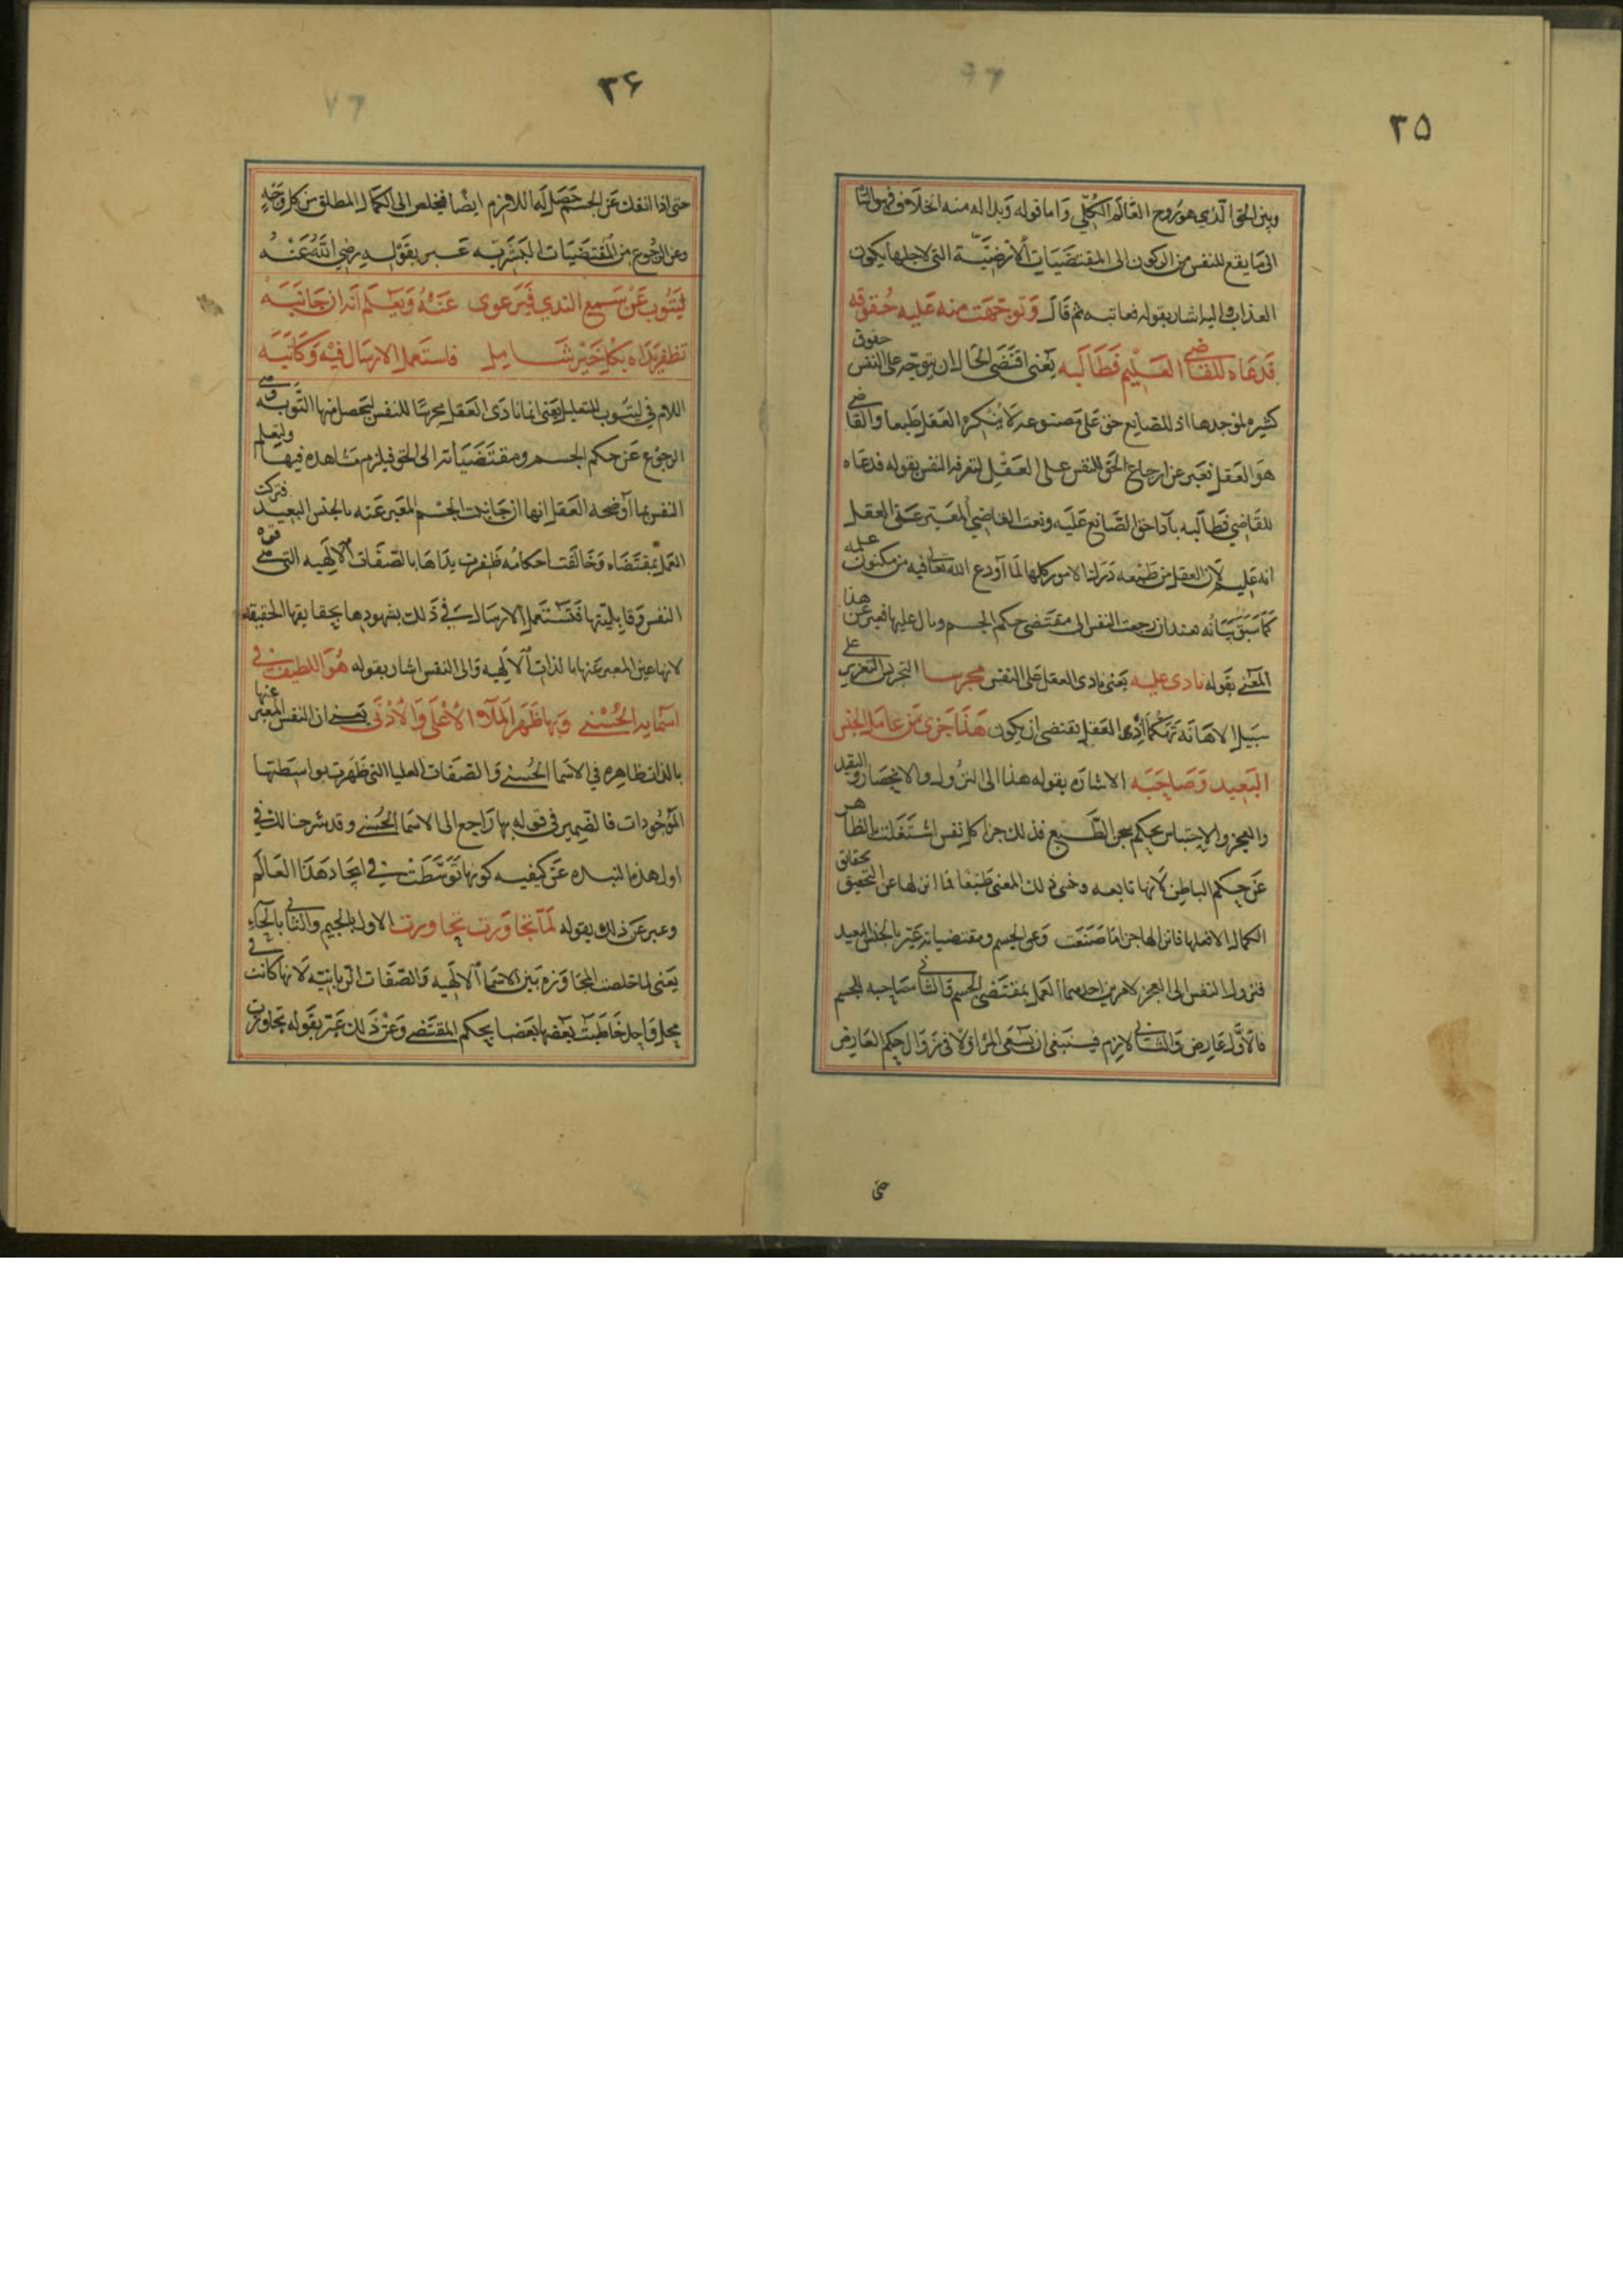 ٣٥
وبين الحق الذي هو روح العالم الكلي واما قوله وبدا له منه الخلاف فهو
الى ما يقع للنفس من الركون الى المقتضيات الارضية التي لاجلها يكون
العذاب واليه اشار بقوله فعاتبه ثم قال وتوجهت منه عليه حقوقه
قد عاه للقاضي العليم فطالبه يعني اقتضى الحال ان يتوجه على النفس حقوق
كثيره لموجدها اذ للصانع حق على مصنوعه لا ينكره العقل طبعا والقاضي
هو العقل فعبر عن ارجاع الحق للنفس على العقل لتعرفه النفس بقوله فدعاه
للقاضي فطالبه باداء حق الصانع عليه ونعت القاضي المعبر عن العقل
انه عليم لان العقل من طبعه درك الامور كلها لما اودع الله تعالى فيه من مكنون علمه
كما سبق بيانه عند ان رجعت النفس الى مقتضى حكم الجسم ومال عليها فعبر عن هذا
المعنى بقوله نادى عليه يعني نادى العقل على النفس مجرسا التجريس التعزير على
سبيل الاهانة تهكما اذ العقل يقتضي ان يكون هذا جزى من عامل الجنس
البعيد وصاحبه الاشاره بقوله هذا الى النزول والانحصار والتقيد
والعجز والاحتباس بحكم عجن الطبع فذلك جزا كل نفس اشتغلت بالظاهر
عن حكم الباطن لانها تابعه وخفي ذلك المعنى طبعا فما اذن لها عن التحقيق بحقائق
الكمال الا فعلها فانزالها جزا ما صنعت وعن الجسم ومقتضياته عبر بالجنس البعيد
فنزول النفس الى العجز لامرين احدهما العمل بمقتضى الجسم والثاني مصاحبه الجسم
فالاول عارض والثاني لازم فينبغي ان يسعى المرء اولا في زوال حكم العارض
حتى
٣۶
حتى اذا انفك عن الجسم حصل له اللازم ايضا فيخلص الى الكمال المطلق من كل وجه
وعن الرجوع من المقتضيات البشرية عبر بقوله رضي الله عنه
ليتوب عن سمع الندي فيرعوى عنه ويعلم انه ان جانبه
تظفر يداه بكل خير شامل فاستعمل الارسال فيه وكاتبه
اللام في ليتوب للتعليل يعني انما نادى العقل مجرسا للنفس ليحصل منها التوبه وهي
الرجوع عن حكم الجسم ومقتضياته الى الحق فيلزم مشاهده فيها ولتعلم
النفس بما اوضحه العقل انها ان جانبت الجسم المعبر عنه بالجنس البعيد فتركت
العمل بمقتضاه وخالفت احكامه ظفرت يداها بالصفات الالهيه التي هي قوة
النفس وقابليتها فتستعمل الارسال في ذلك بشهودها بحقايقها الحقيقه
لانها عين المعبر عنها بالذات الالهيه والى النفس اشار بقوله هو اللطيف في
اسمايه الحسنى وبها ظهر الملأ الاعلى والادنى يعني ان النفس المعبر عنها
بالذات ظاهره في الاسما الحسنى والصفات العليا التي ظهرت بواسطتها
الموجودات فالضمير في قوله بها راجع الى الاسما الحسنى وقد شرحنا لك في
اول هذه النبذه عن كيفيه كونها توسطت في ايجاد هذا العالم
وعبر عن ذلك بقوله لما تجاورت تحاورت الاول بالجيم والثاني بالحاء
يعني لما خلصت المجاوره بين الاسما الالهيه والصفات الربانيه لانها كانت في
محل واحد خاطبت بعضها بعضا بحكم المقتضى وعن ذلك عبر بقوله تحاورت